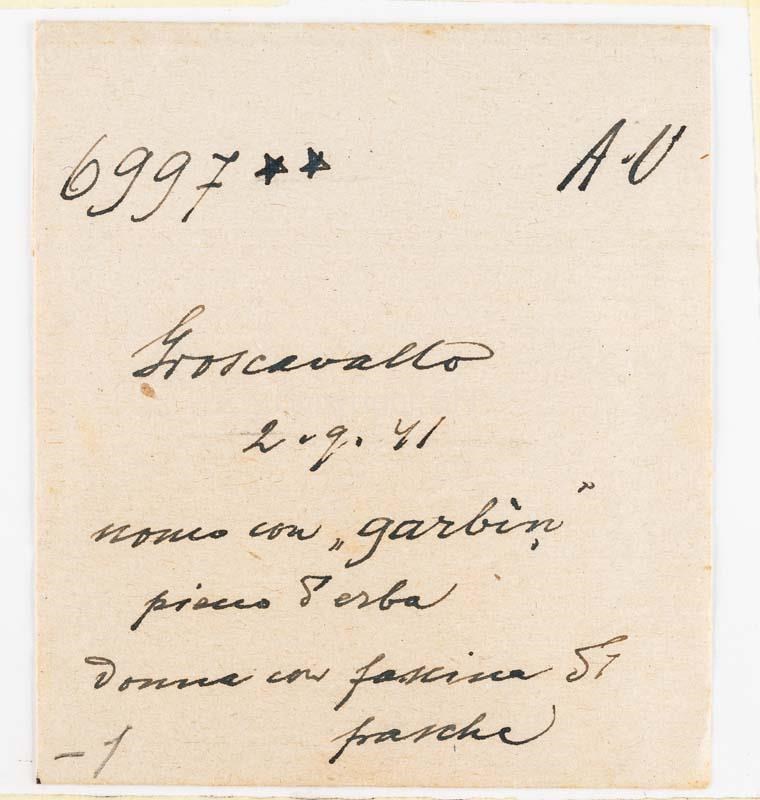 6997 ★★ A.V
Groscavallo
2.9.41
uomo con „garbìn”
pieno d'erba
donna con fascina di
frasche
- 1